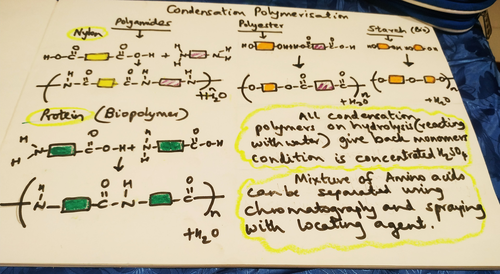 Condensation Polymerisation
Polyamides
Polyester
Starch (Bio)
Nylon
H-O-C C-O-H + N N
O O H H H H
HO OH HO-C C-O-H
O O
HO OH HO OH
( N N-C C )n
+H2O
( O O-C C )n
+H2O
( O O )n
+H2O
Protein (Biopolymer)
H H N C-O-H + N C-O-H
O H O
( N C N C )n
H O H O
+H2O
All condensation
polymers on hydrolysis (reacting
with water) give back monomers
condition is concentrated H2SO4
Mixture of Amino acids
can be separated using
chromatography and spraying
with locating agent.